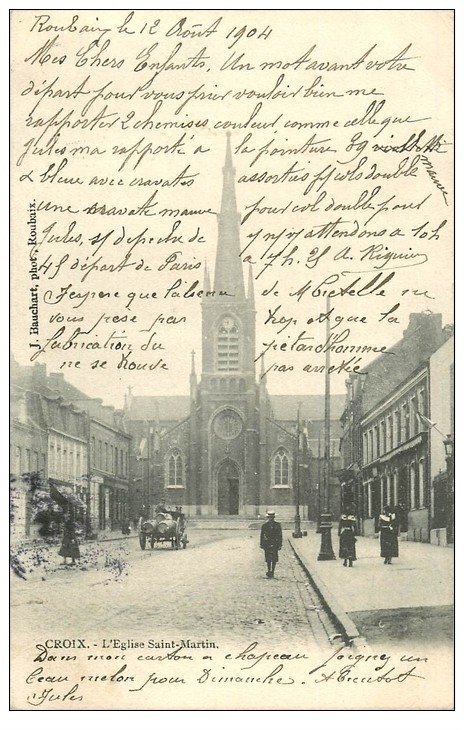 Roubaix le 12 Août 1904
Mes Chers Enfants. Un mot avant votre
départ pour vous prier vouloir bien me
rapporter 2 chemises couleur comme celle que
Jules ma rapporté a la pointure 39
& bleue avec cravates assorties pr cols double
mauve
une cravate mauve pour col double pour
Jules, depeche de attendons a 10h
45 départ de Paris a 7h. 25 a
J'espere que l'absence de M
vous pese pas trop et que la
fabrication du petard homme
ne se trouve pas arretée
J. Bauchart, phot., Roubaix.
CROIX. - L'Eglise Saint-Martin.
Dans mon carton a chapeau joignez un
beau melon pour Dimanche. A bientot
Jules